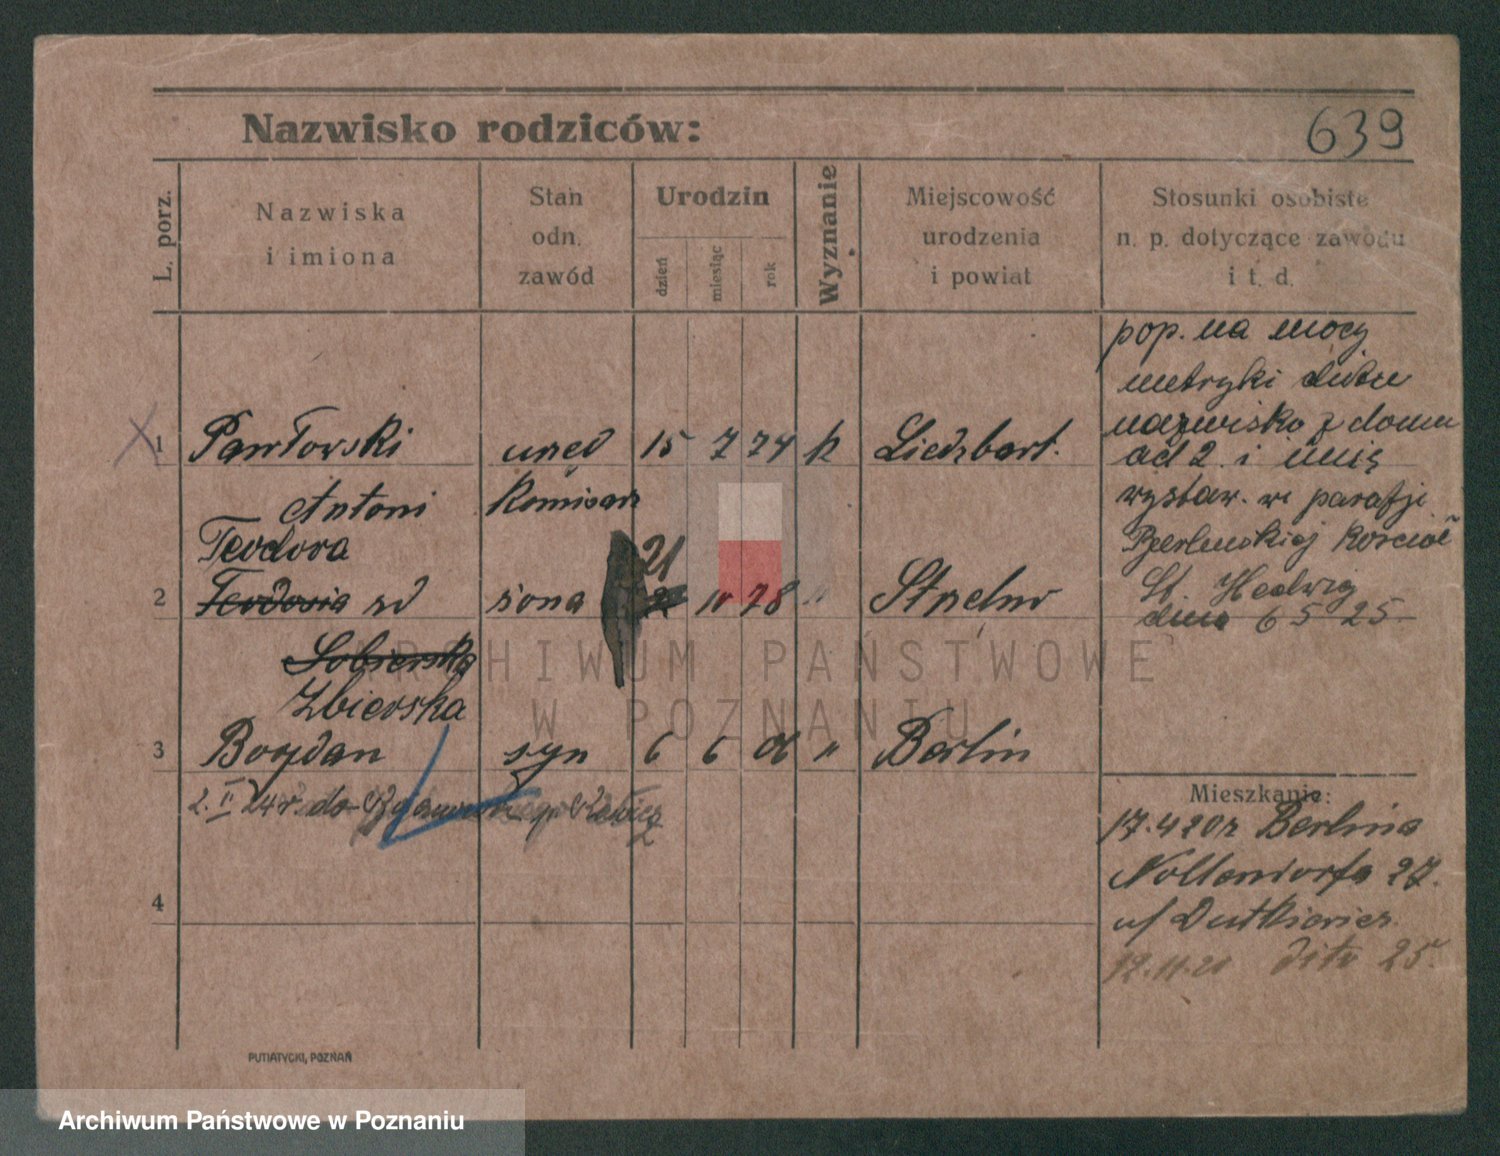 Nazwisko rodziców:
639
L. porz.
Nazwiska
i imiona
Stan
odn.
zawód
Urodzin
dzień
miesiąc
rok
Wyznanie
Miejscowość
urodzenia
i powiat
Stosunki osobiste
n. p. dotyczące zawodu
i t. d.
pop. na mocy
metryki
nazwisko z domu
ad 2. i imię
wystaw. w parafji
Berlińskiej
St. Hedwig
dnia 6 5 25
1 Pawłowski urzęd 15 7 74 k Lidzbark.
Antoni
Teodora
21
2 Teodosia zd żona 10 78 " Strzelno
Sobierska
Zbierska
3 Bogdan syn 6 6 06 " Berlin
2. II 24 r. do
4
Mieszkanie:
17.4 20 z Berlina
Nollendorfa 27.
u/ Dutkiewicz
12.11.21 dito 25.
PUTIATYCKI, POZNAŃ
ARCHIWUM PAŃSTWOWE
W POZNANIU
Archiwum Państwowe w Poznaniu